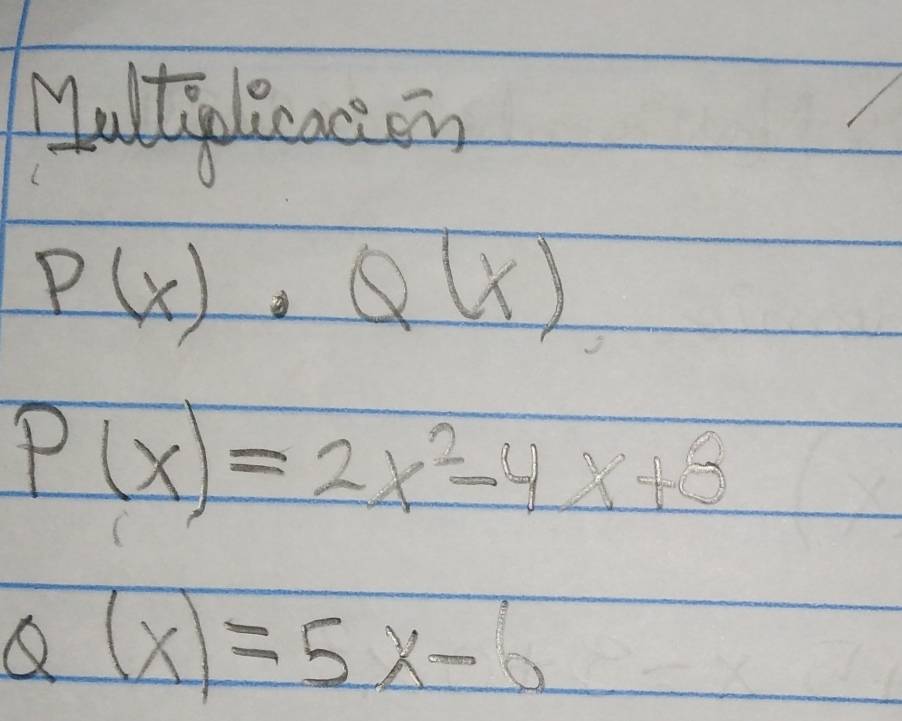 Multiplicación
P(x) . Q(x)
P(x) = 2x² - 4x + 8
Q(x) = 5x - 6